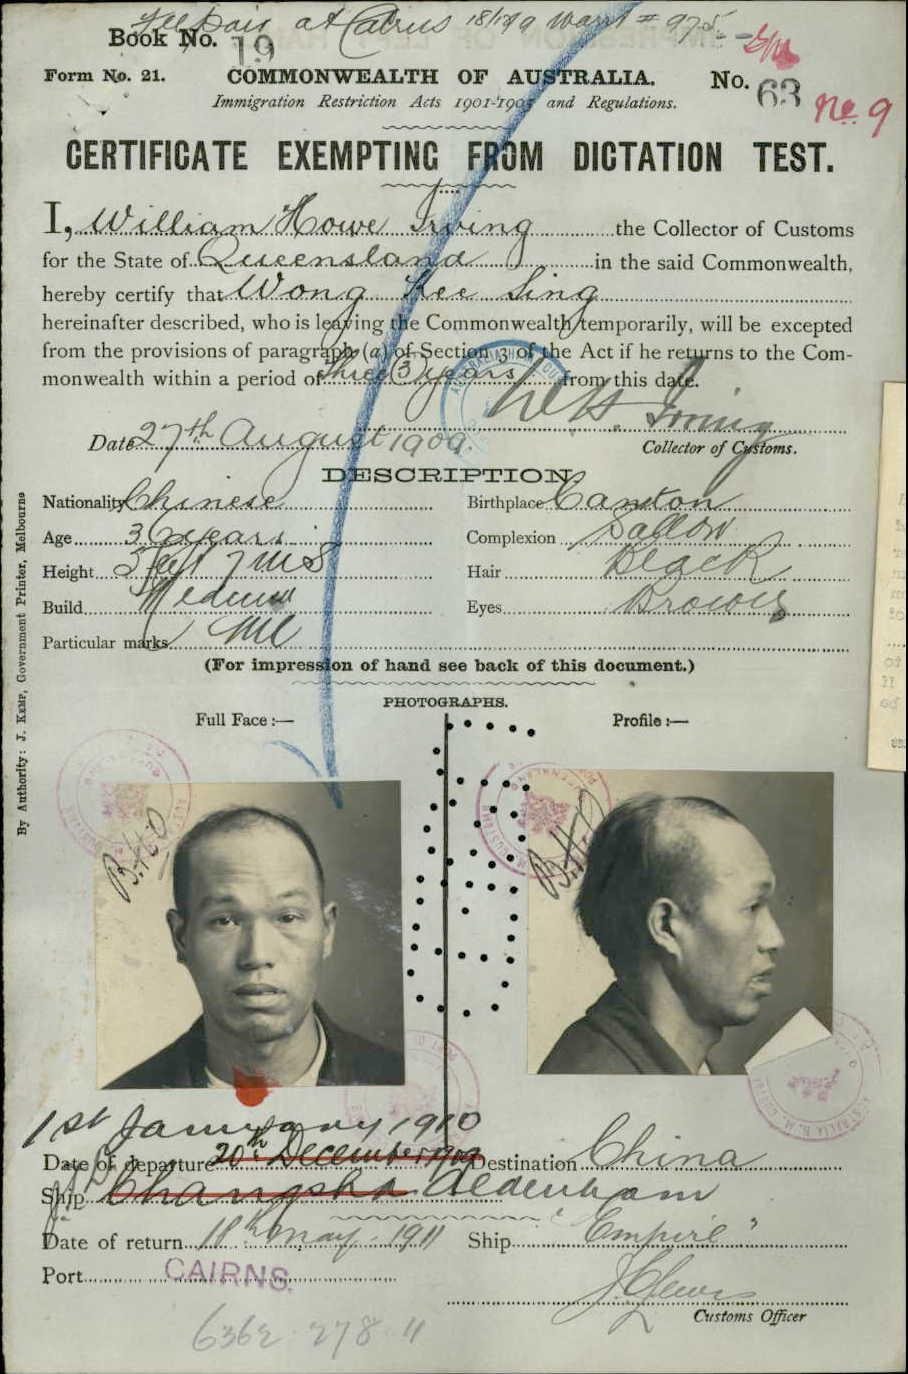 Fee paid at Cairns 18/12/09 Warrt # 975
Book No. 19
Form No. 21.
COMMONWEALTH OF AUSTRALIA.
No. 63
Immigration Restriction Acts 1901-1905 and Regulations.
No. 9
CERTIFICATE EXEMPTING FROM DICTATION TEST.
I, William Howe Irving the Collector of Customs
for the State of Queensland in the said Commonwealth,
hereby certify that Wong Kee Sing
hereinafter described, who is leaving the Commonwealth temporarily, will be excepted
from the provisions of paragraph (a) of Section 3 of the Act if he returns to the Com-
monwealth within a period of three (3) years from this date.
W H. Irving
Date 27th August 1909.
Collector of Customs.
DESCRIPTION
Nationality Chinese Birthplace Canton
Age 36 years Complexion Sallow
Height 5 feet 7 ins Hair Black
Build Medium Eyes Brown
Particular marks Nil
(For impression of hand see back of this document.)
PHOTOGRAPHS.
Full Face :— Profile :—
B.H.P
B.H.P
1st January 1910
Date of departure 20th December 1909 Destination China
Ship Changsha Aldenham
Date of return 18th May 1911 Ship "Empire"
Port CAIRNS.
Customs Officer
6362 278 11
By Authority: J. KEMP, Government Printer, Melbourne